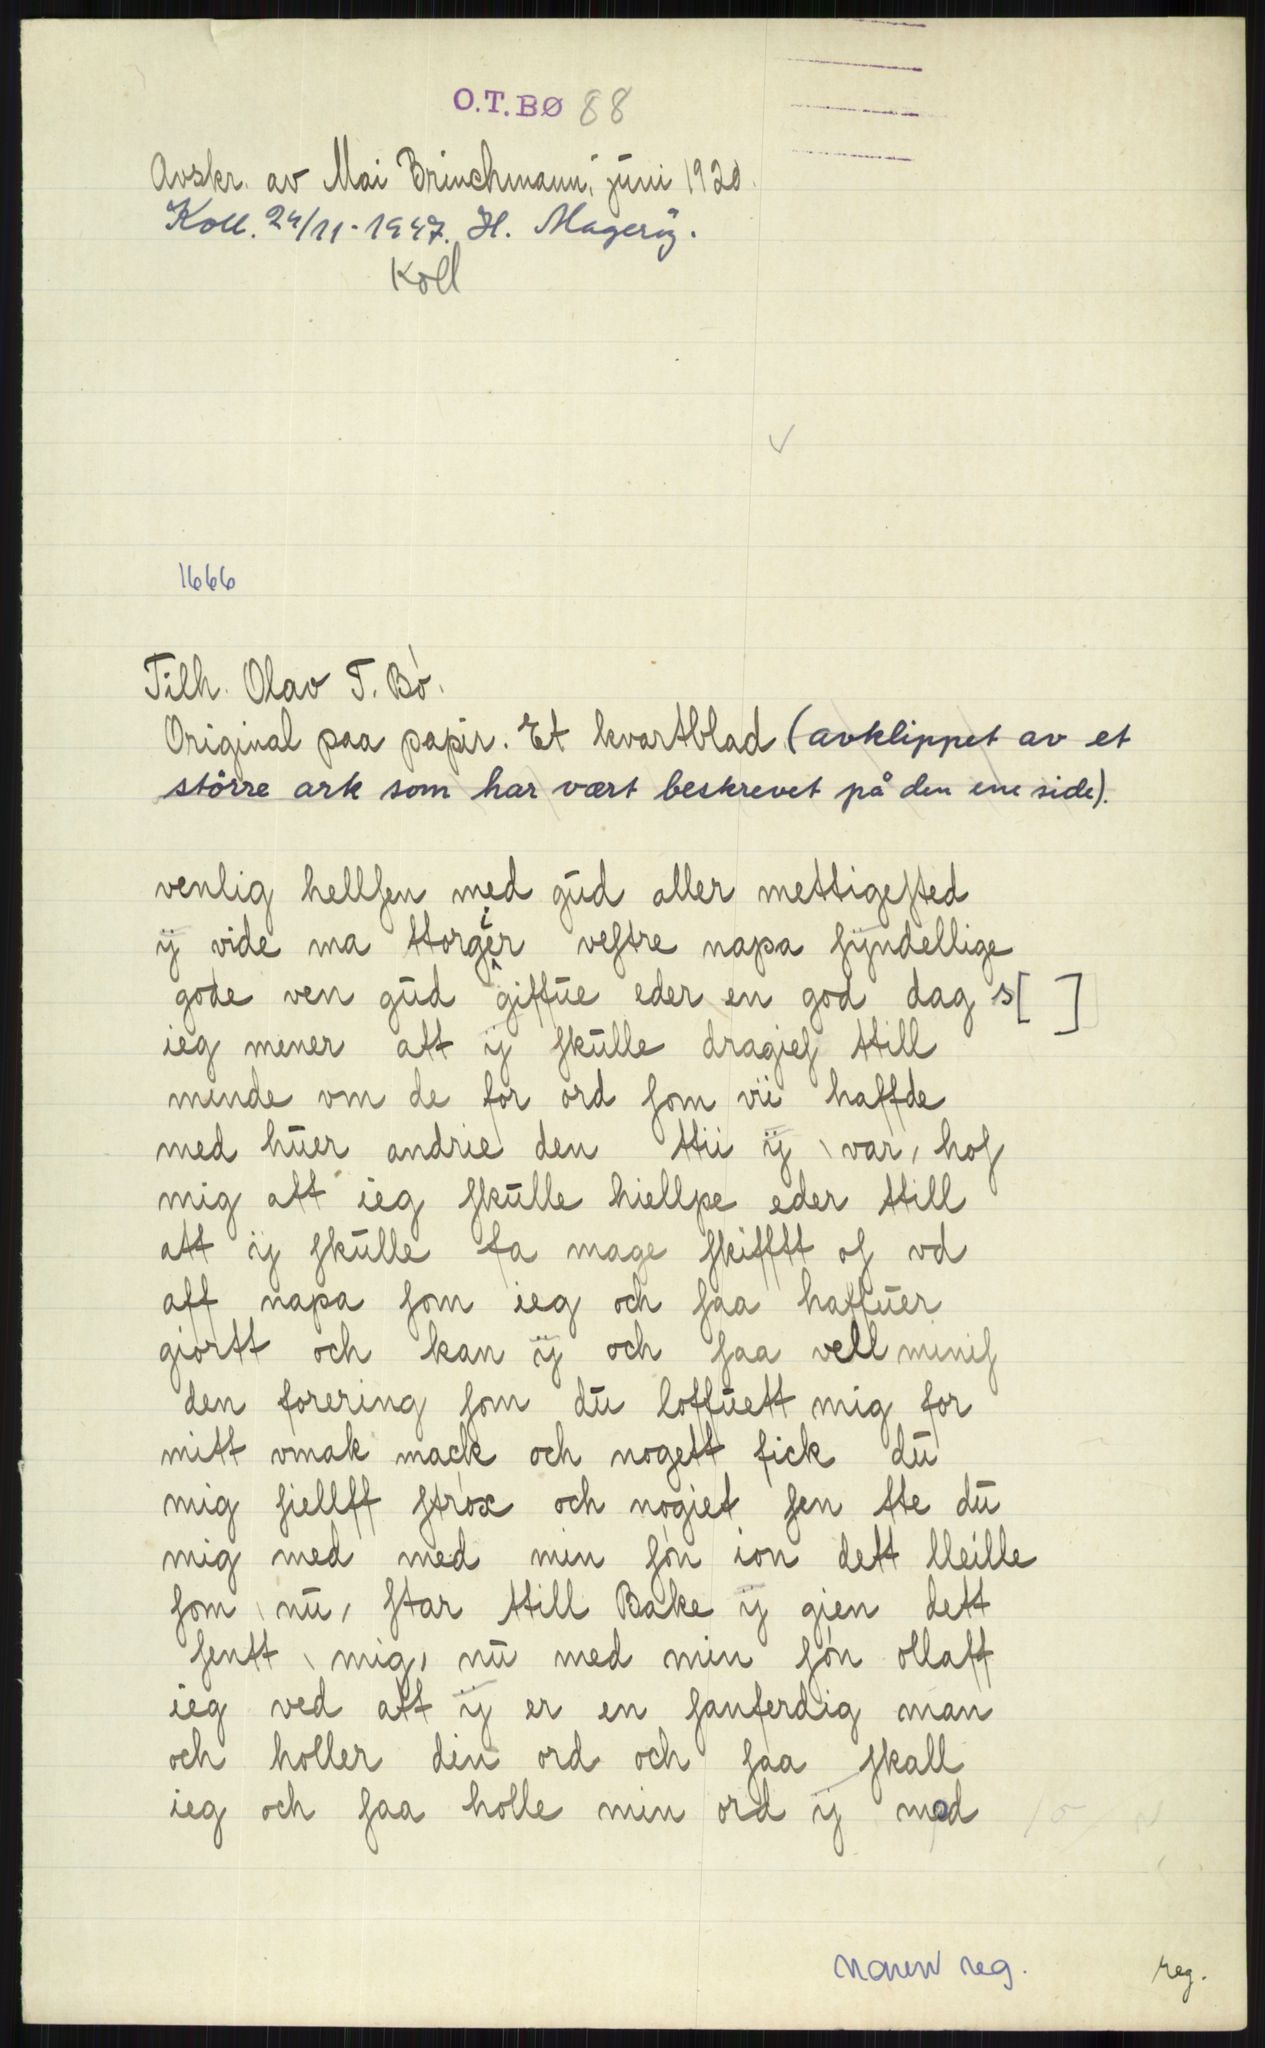 O.T.BØ 88
Avskr. av Mai Brinchmann, juni 1920.
Koll. 24/11-1947. H. Magerøy.
Koll
1666
Tilh. Olav T. Bø.
Original paa papir. Et kvartblad (avklippet av et
större ark som har vært beskrevet på den ene side).
venlig hellſen med gud aller mettigeſted
ÿ vide ma ttorgier veſtre napa ſÿndellige
gode ven gud giffue eder en god dag s[ ]
ieg mener att ÿ ſkulle dragieſ ttill
minde vm de for ord ſom vii haffde
med huer andrie den ttii ÿ \ var / hoſ
mig att ieg ſkulle hiellpe eder ttill
att ÿ ſkulle fa mage ſkifftt oſ vd
aff napa ſom ieg och ſaa haffuer
giortt och kan ÿ och ſaa vell miniſ
den forering ſom du loffuett mig for
mitt vmak mack och nogett fick du
mig ſiellff ſtrox och nogiet ſen tte du
mig med med min ſøn ion dett lleille
ſom \ nu / ſtar ttill Bake ÿ gien dett
ſentt \ mig / nu med min ſøn ollaff
ieg ved att ÿ er en ſanferdig man
och holler din ord och ſaa ſkall
ieg och ſaa holle min ord ÿ mod
navn reg.
reg.